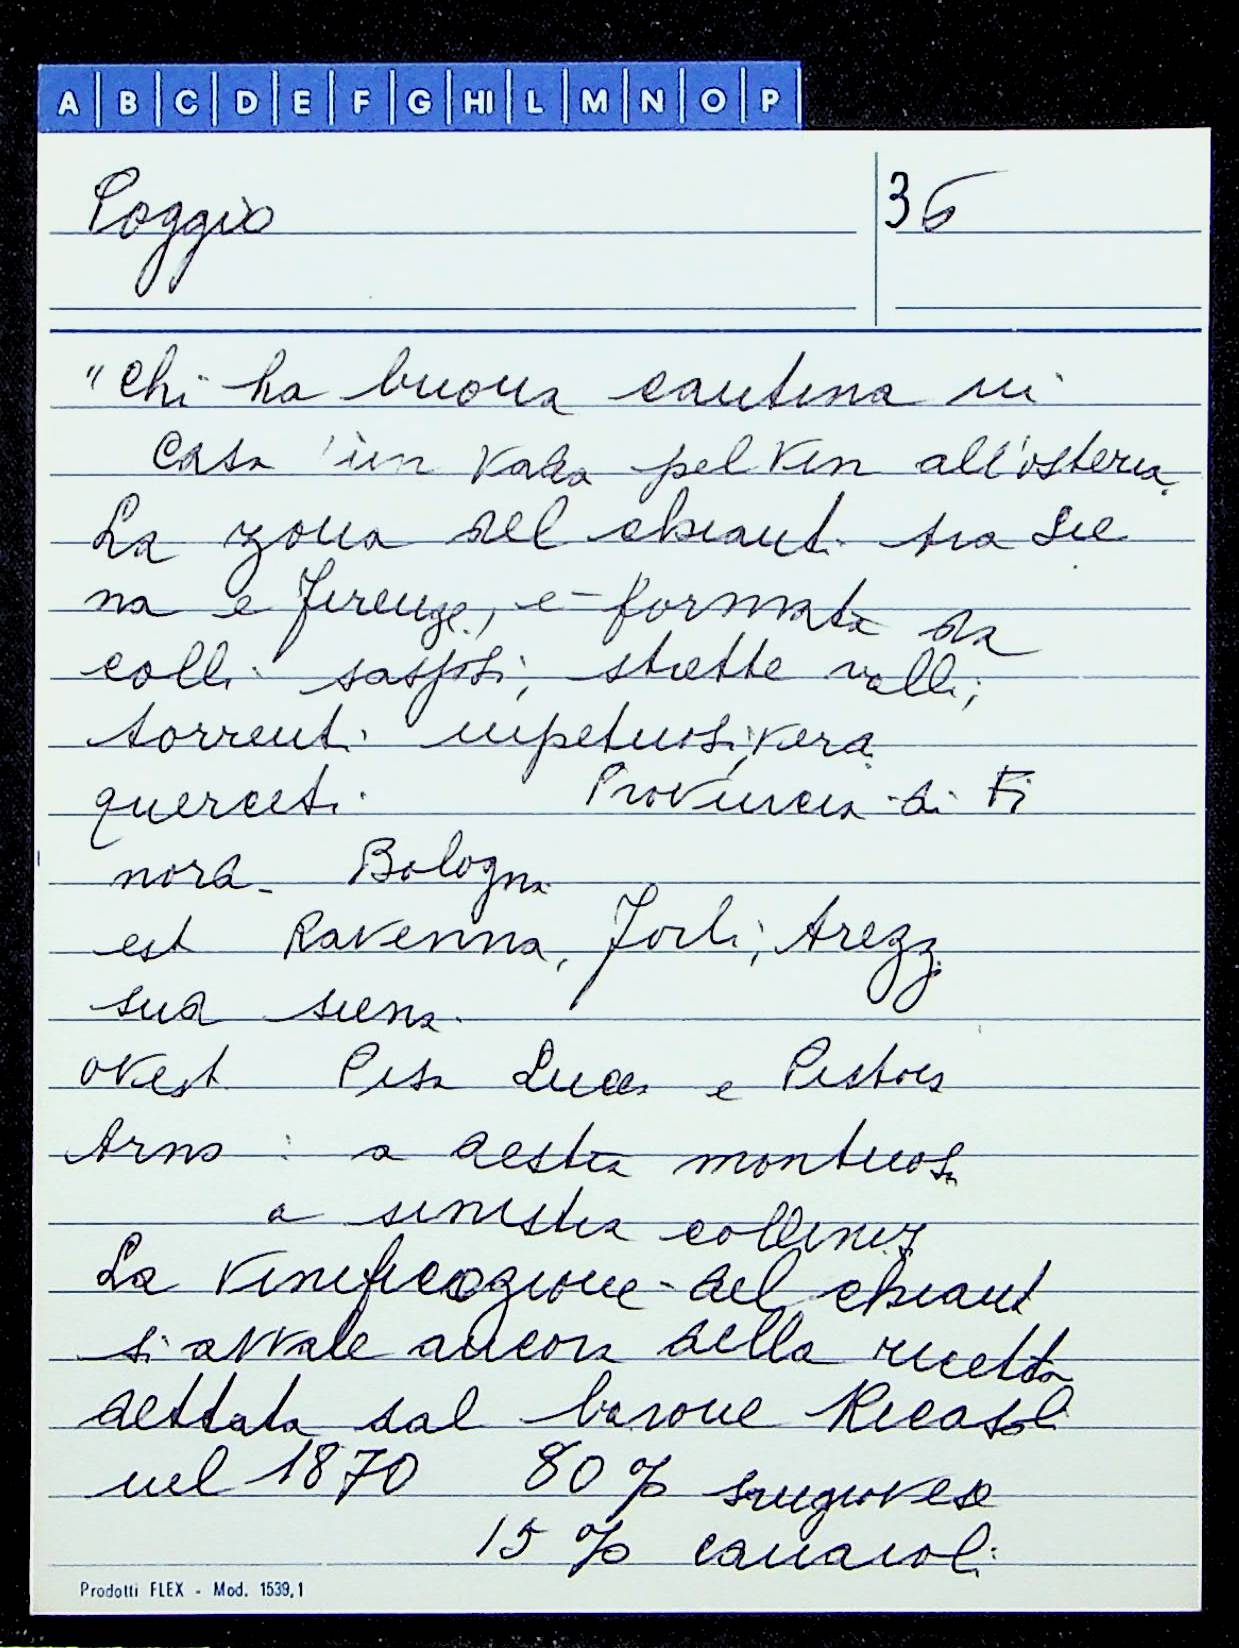 A B C D E F G HI L M N O P
Poggio 36
"Chi ha buona cantina in
casa un vada pel vin all'osteria.
La zona del chianti tra Sie
na e Firenze, e formata da
colli sassosi, strette valli,
torrenti impetuosi,
querceti. Provincia di Fi
nord - Bologna
est Ravenna, Forli, Arezzo
sud siena.
ovest Pisa Lucca e Pistoia
Arno : a destra montuosa
a sinistra collinosa
La vinificazione del chianti
si avvale ancora della ricetta
dettata dal barone Ricasoli
nel 1870 80% sangiovese
15% canaioli
Prodotti FLEX - Mod. 1539,1